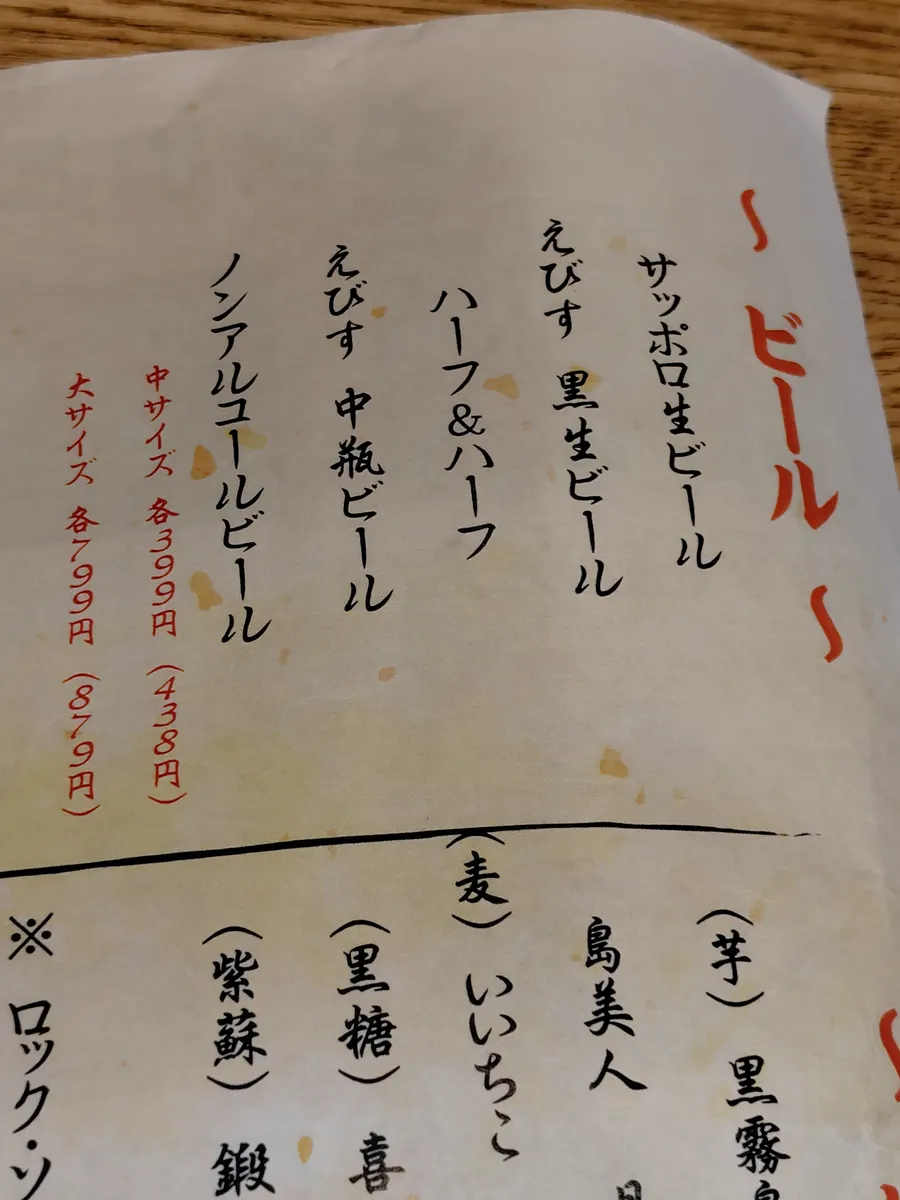 〜 ビール 〜
サッポロ生ビール
えびす 黒生ビール
ハーフ&ハーフ
えびす 中瓶ビール
ノンアルコールビール
中サイズ 各399円 (438円)
大サイズ 各799円 (879円)
(芋) 黒霧島
島美人
(麦) いいちこ
(黒糖) 喜
(紫蘇) 鍛
※ ロック・ソ